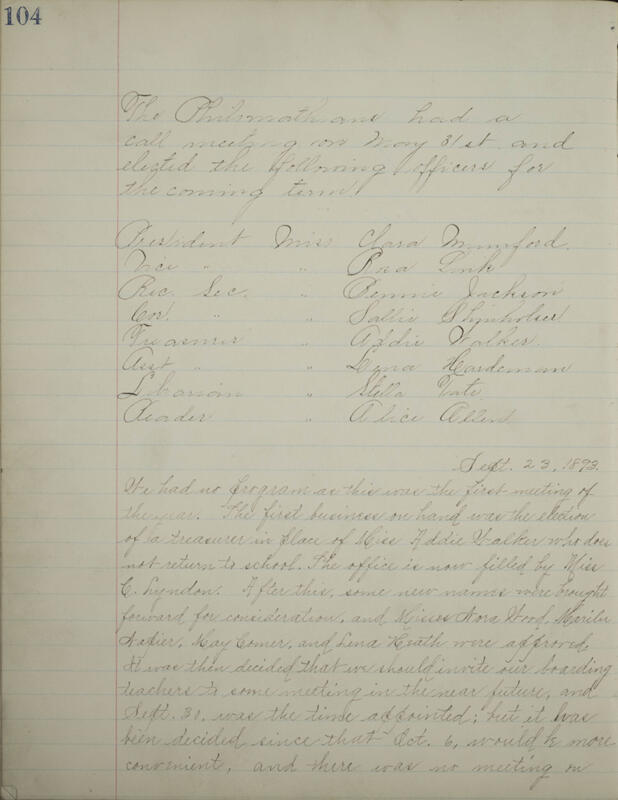 104
The Philomatheans had a
call meeting on May 31st and
elected the following officers for
the coming term.
President Miss Clara Mumford.
Vice " " Rosa Link
Rec. Sec. " Bennie Jackson
Cor. " " Sallie
Treasurer " Addie Walker.
Asst " " Lena Hardeman
Librarian " Stella Tate.
Reader " Alice Allen.
Sept. 23, 1893.
We had no program as this was the first meeting of
the year. The first business on hand was the election
of a treasurer in place of Miss Addie Walker who does
not return to school. The office is now filled by Miss
C. Lyndon. After this, some new names were brought
forward for consideration, and Misses Nora Wood, Marilu
Napier, May Comer, and Lena Heath were approved.
It was then decided that we should invite our boarding
teachers to some meeting in the near future, and
Sept. 30, was the time appointed; but it has
been decided since that Oct. 6, would be more
convenient, and there was no meeting on